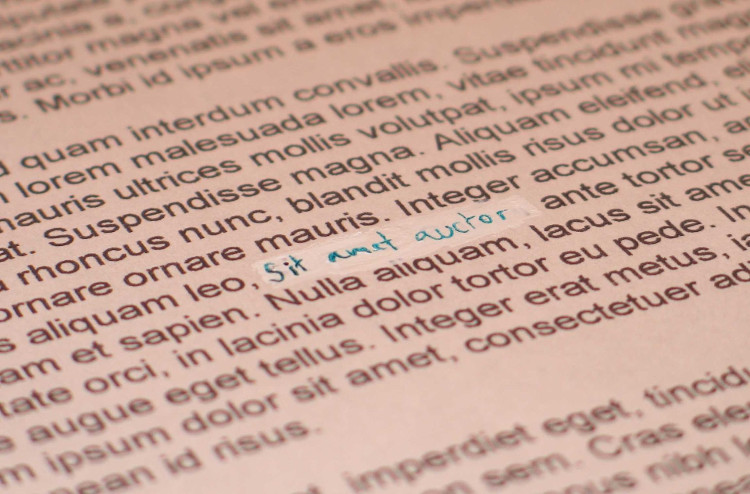 putate
venenatis sit amet,
s. Morbi id ipsum a eros imper
quam interdum convallis. Suspendisse
lorem malesuada lorem, vitae tincidunt
mauris ultrices mollis volutpat, ipsum mi
at. Suspendisse magna. Aliquam eleifend,
rhoncus nunc, blandit mollis risus dolor ut
ornare ornare mauris. Integer accumsan,
s aliquam leo, Sit amet auctor ante tortor
am et sapien. Nulla aliquam, lacus sit ame
tate orci, in lacinia dolor tortor eu pede. In
e augue eget tellus. Integer erat metus,
m ipsum dolor sit amet, consectetuer ad
nean id risus.
imperdiet eget, tincid
sem. Cras ele
nibh